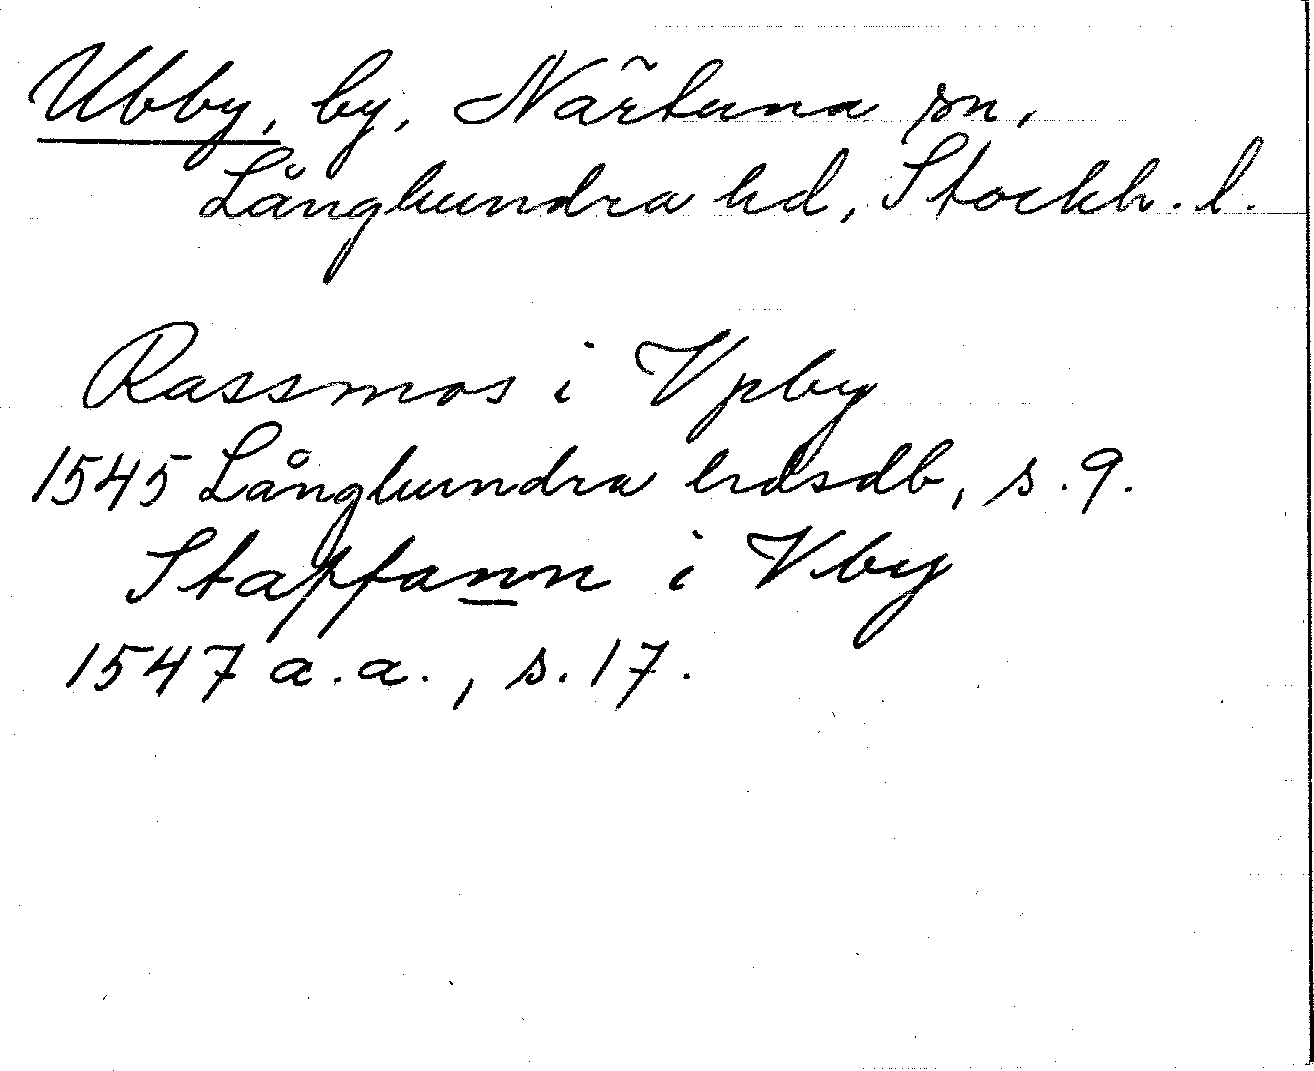 Ubby, by, Närtuna sn,
Långhundra hd, Stockh. l.
Rassmos i Vpby
1545 Långhundra hdsdb, s. 9.
Staffann i Vby
1547 a.a., s. 17.